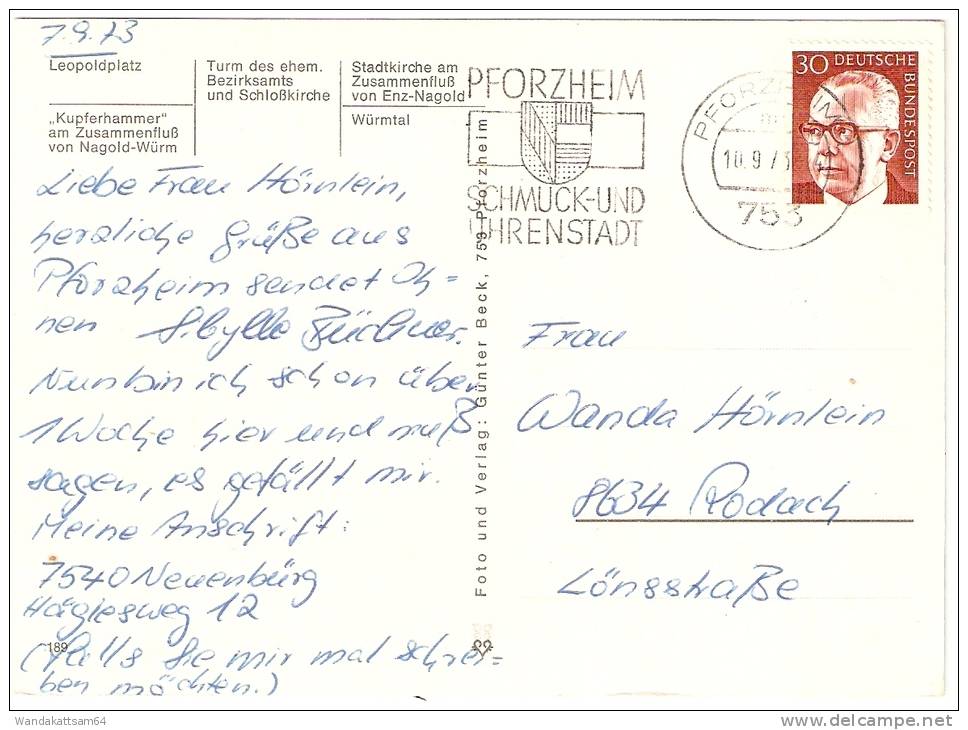 7.9.73
Leopoldplatz
„Kupferhammer“
am Zusammenfluß
von Nagold-Würm
Turm des ehem.
Bezirksamts
und Schloßkirche
Stadtkirche am
Zusammenfluß
von Enz-Nagold
Würmtal
PFORZHEIM
SCHMUCK-UND
UHRENSTADT
PFORZHEIM
10.9.73
753
30 DEUTSCHE
BUNDESPOST
Liebe Frau Hörnlein,
herzliche Grüße aus
Pforzheim sendet Ih=
nen Sibylle Büchner.
Nun bin ich schon über
1 Woche hier und muß
sagen, es gefällt mir.
Meine Anschrift:
7540 Neuenbürg
Häglesweg 12
(Falls Sie mir mal schrei=
ben möchten.)
189
Foto und Verlag: Günter Beck, 753 Pforzheim
Frau
Wanda Hörnlein
8634 Rodach
Lönsstraße
Wandakattsam64
delcampe.net